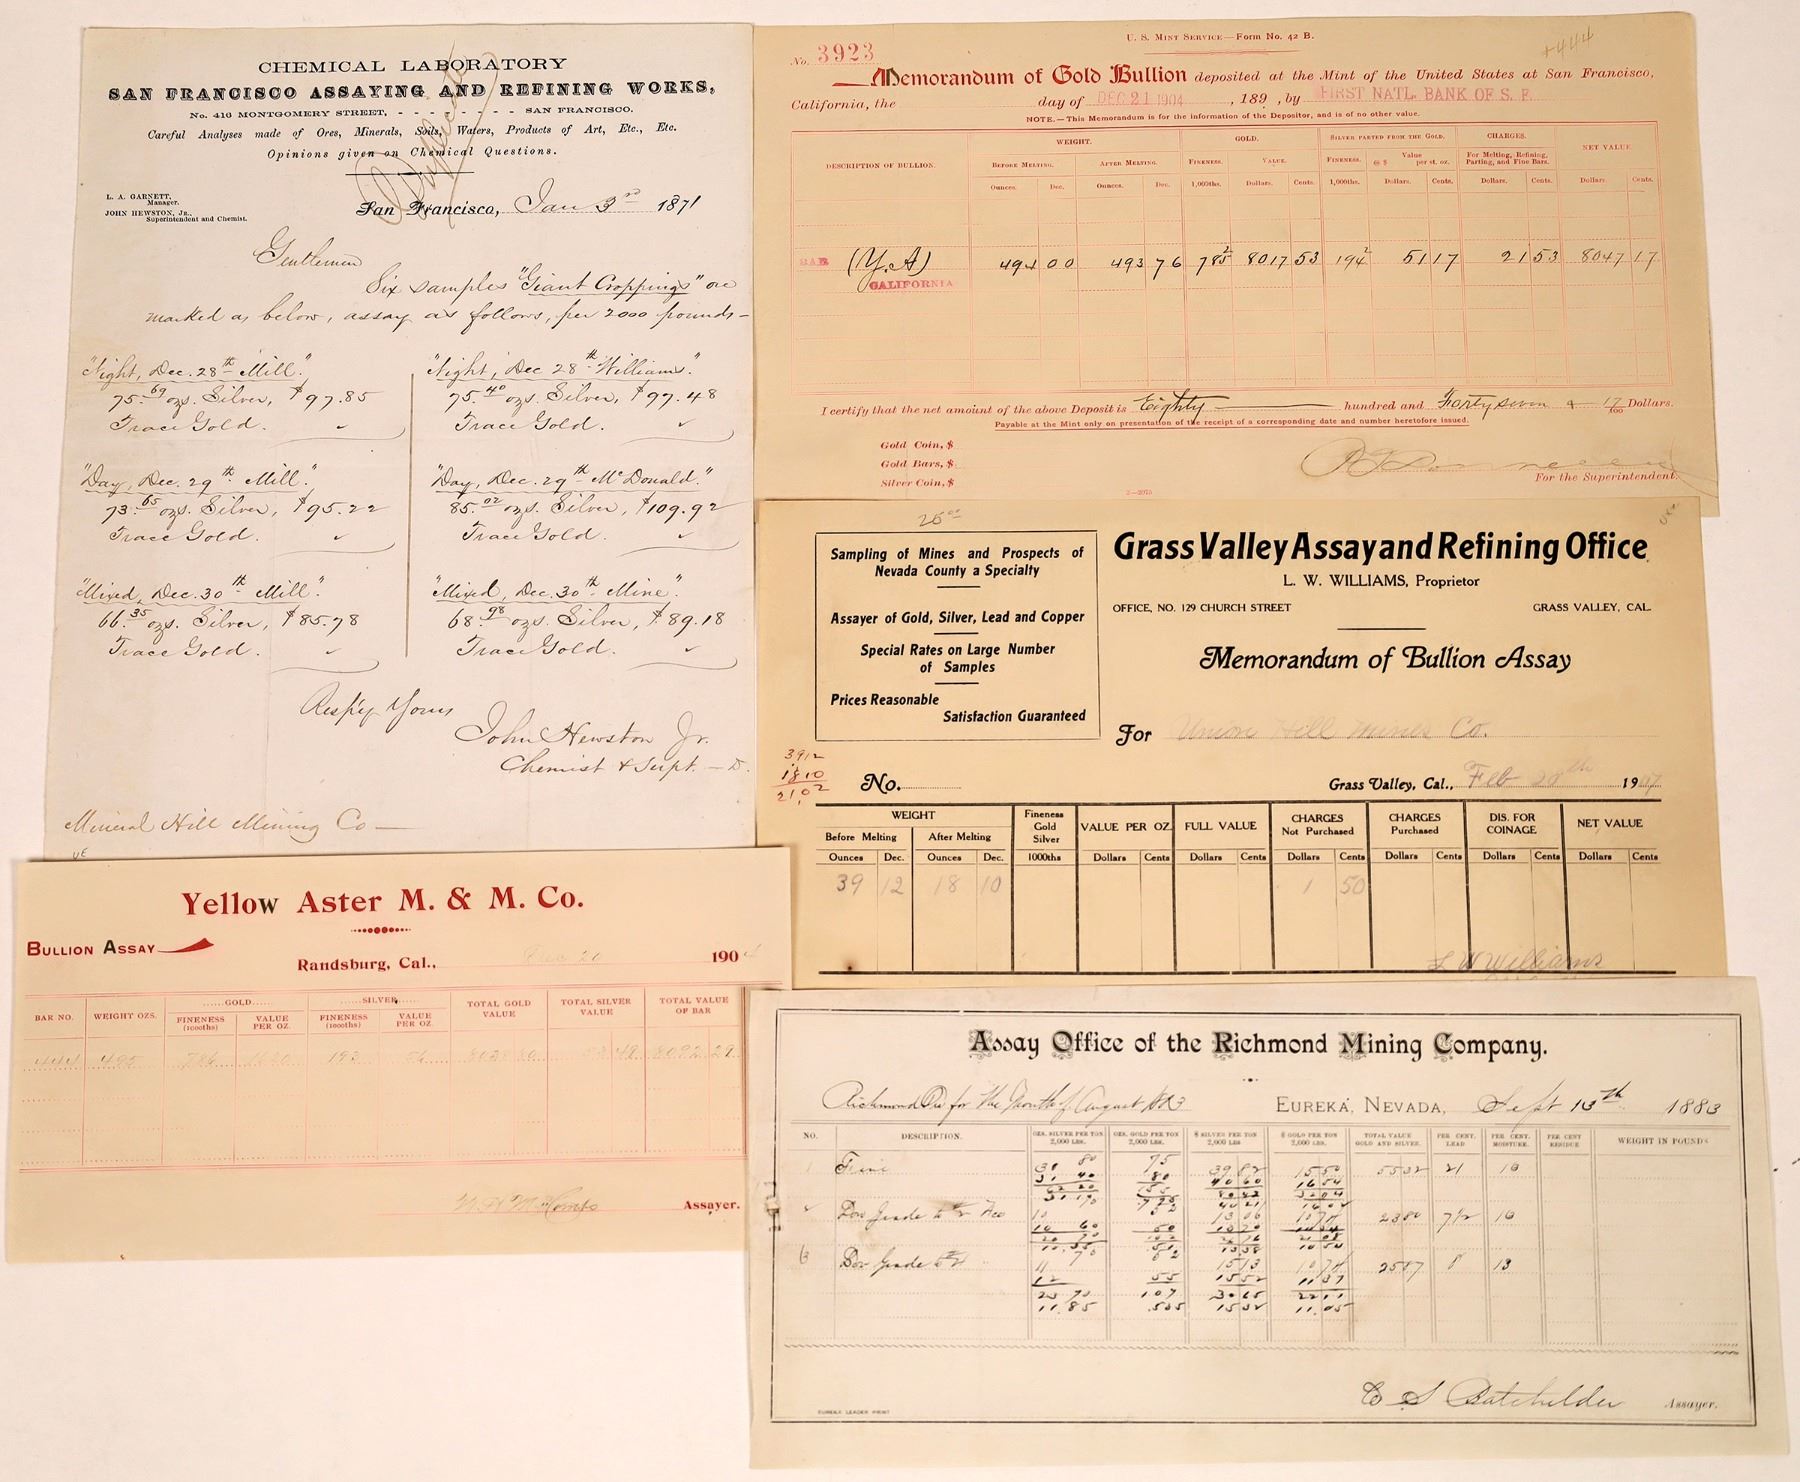 CHEMICAL LABORATORY
SAN FRANCISCO ASSAYING AND REFINING WORKS,
No. 416 MONTGOMERY STREET, - - - - - - - - SAN FRANCISCO.
Careful Analyses made of Ores, Minerals, Soils, Waters, Products of Art, Etc., Etc.
Opinions given on Chemical Questions.
Duplicate
L. A. GARNETT,
Manager.
JOHN HEWSTON, JR.,
Superintendent and Chemist.
San Francisco, Jan 3rd 1871
Gentlemen
Six samples "Giant Croppings" ore
marked as below, assay as follows, per 2000 pounds—
"Night, Dec. 28th Mill."
75.69 ozs. Silver, $97.85
Trace Gold.
"Night, Dec 28th Williams."
75.40 ozs. Silver, $97.48
Trace Gold.
"Day, Dec. 29th Mill."
73.65 ozs. Silver, $95.22
Trace Gold.
"Day, Dec. 29th McDonald."
85.02 ozs. Silver, $109.92
Trace Gold.
"Mixed, Dec. 30th Mill."
66.35 ozs. Silver, $85.78
Trace Gold.
"Mixed, Dec. 30th Mine."
68.98 ozs. Silver, $89.18
Trace Gold.
Resp'y Yours
John Hewston Jr.
Chemist & Supt.
Mineral Hill Mining Co—
U. S. MINT SERVICE—FORM No. 42 B.
No. 3923
+444
Memorandum of Gold Bullion deposited at the Mint of the United States at San Francisco,
California, the day of DEC 21 1904 , 189 , by FIRST NATL. BANK OF S. F.
NOTE.—This Memorandum is for the information of the Depositor, and is of no other value.
DESCRIPTION OF BULLION. WEIGHT. GOLD. SILVER PARTED FROM THE GOLD. CHARGES. NET VALUE
BEFORE MELTING. AFTER MELTING. FINENESS. VALUE. FINENESS. @ $ Value per st. oz. For Melting, Refining, Parting, and Fine Bars.
Ounces. Dec. Ounces. Dec. 1,000ths. Dollars. Cents. 1,000ths. Dollars. Cents. Dollars. Cents. Dollars. Cents.
BAR (Y.A) 494 00 493 76 785 2 8017 53 194 2 51 17 21 53 8047 17
CALIFORNIA
I certify that the net amount of the above Deposit is Eighty hundred and Forty seven & 17/100 Dollars.
Payable at the Mint only on presentation of the receipt of a corresponding date and number heretofore issued.
Gold Coin, $
Gold Bars, $
Silver Coin, $
For the Superintendent.
2—2075
25 00
Sampling of Mines and Prospects of
Nevada County a Specialty
Assayer of Gold, Silver, Lead and Copper
Special Rates on Large Number
of Samples
Prices Reasonable
Satisfaction Guaranteed
Grass Valley Assay and Refining Office
L. W. WILLIAMS, Proprietor
OFFICE, NO. 129 CHURCH STREET GRASS VALLEY, CAL.
Memorandum of Bullion Assay
For Union Hill Mines Co.
3912
1810
2102
No. Grass Valley, Cal., Feb 20th 1907
WEIGHT Fineness Gold Silver VALUE PER OZ. FULL VALUE CHARGES Not Purchased CHARGES Purchased DIS. FOR COINAGE NET VALUE
Before Melting After Melting
Ounces Dec. Ounces Dec. 1000ths Dollars Cents Dollars Cents Dollars Cents Dollars Cents Dollars Cents Dollars Cents
39 12 18 10 1 50
L W Williams
Yellow Aster M. & M. Co.
BULLION ASSAY
Randsburg, Cal., Dec 20 1904
BAR NO. WEIGHT OZS. GOLD SILVER TOTAL GOLD VALUE TOTAL SILVER VALUE TOTAL VALUE OF BAR
FINENESS (1000ths) VALUE PER OZ. FINENESS (1000ths) VALUE PER OZ.
444 495 786 193 56 8038 80 53 49 8092 29
Assayer.
Assay Office of the Richmond Mining Company.
Richmond Ore for the Month of August 1883 EUREKA, NEVADA, Sept 13th 1883
NO. DESCRIPTION. OZS. SILVER PER TON 2,000 LBS. OZS. GOLD PER TON 2,000 LBS. $ SILVER PER TON 2,000 LBS. $ GOLD PER TON 2,000 LBS. TOTAL VALUE GOLD AND SILVER. PER CENT. LEAD PER CENT. MOISTURE. PER CENT RESIDUE WEIGHT IN POUNDS
30 80 75 39 82 15 50 55 32 21 10
31 40 80 40 60 16 54
Low Grade 23 80 7 1/2 10
Low Grade 25 87 8 13
12 55 15 52 11 37
23 70 107 30 65 22 11
11.85 .535 15 32 11.05
C S Batchelder Assayer.
EUREKA LEADER PRINT